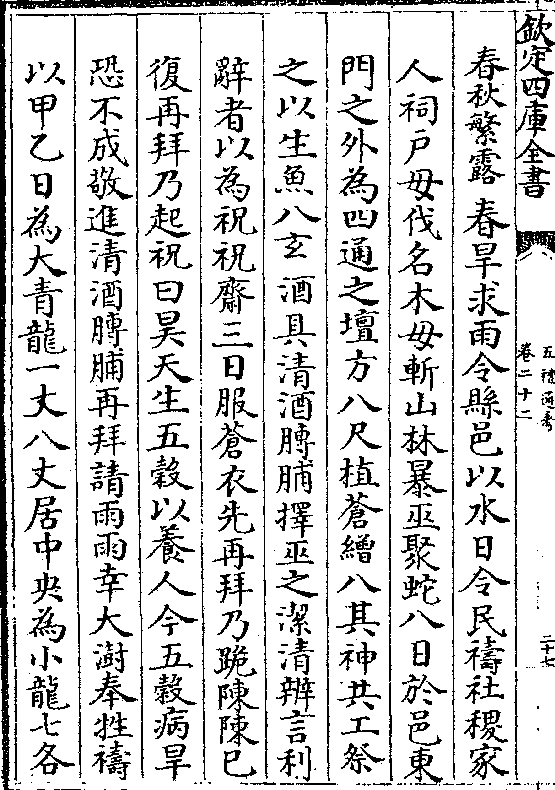 欽定四庫全書
五禮通考
卷二十二
二十七
春秋繁露 春旱求雨令縣邑以水日令民禱社稷家
人祠戶毋伐名木毋斬山林暴巫聚蛇八日於邑東
門之外為四通之壇方八尺植蒼繒八其神共工祭
之以生魚八玄酒具清酒膊脯擇巫之潔清辨言利
辭者以為祝祝齋三日服蒼衣先再拜乃跪陳陳已
復再拜乃起祝曰昊天生五穀以養人今五穀病旱
恐不成敬進清酒膊脯再拜請雨雨幸大澍奉牲禱
以甲乙日為大青龍一丈八丈居中央為小龍七各